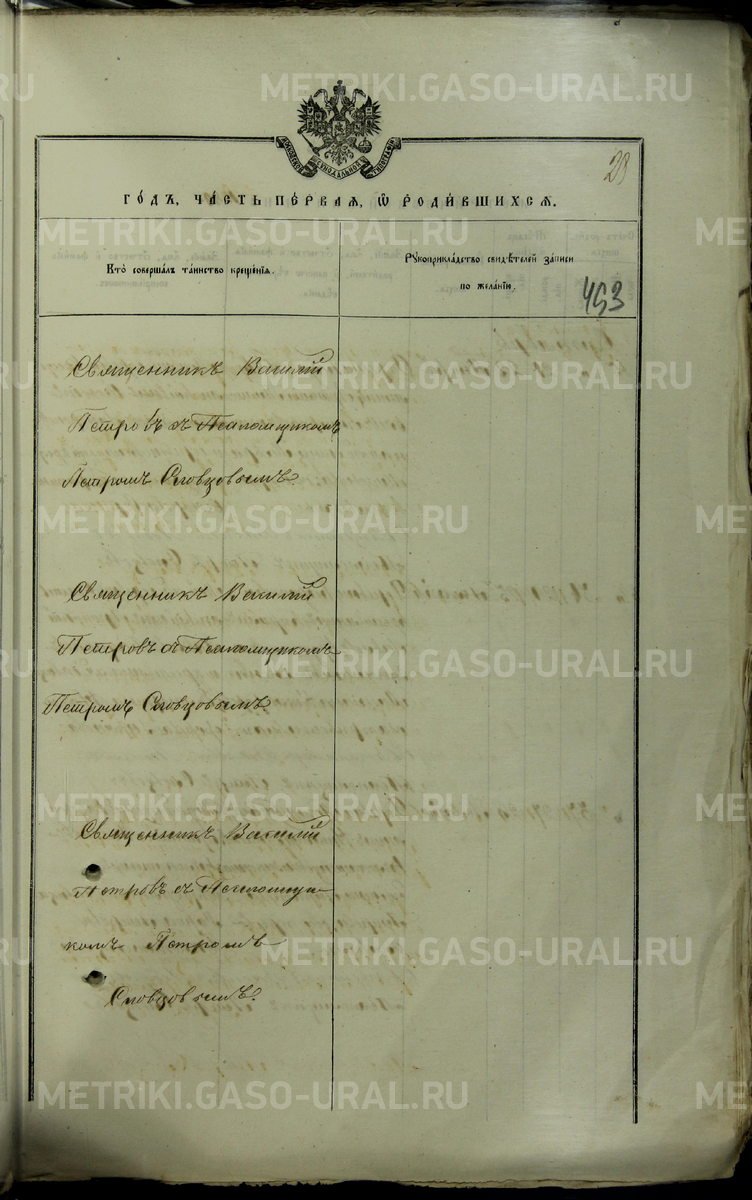 METRIKI.GASO-URAL.RU
МОСКОВСКОЙ СѴНОДАЛЬНОЙ ТИПОГРАФІИ
28
453
ГО́ДЪ, ЧА́СТЬ ПЕ́РВАЯ, Ѡ҆ РОДИ́ВШИХСЯ.
Кто̀ совершалъ та́инство креще́нїѧ.
Рꙋкоприкла́дство свидѣ́телей за́писи
по жела́нїю.
Священникъ Василій
Петровъ съ Псаломщикомъ
Петромъ Словцовымъ.
Священникъ Василій
Петровъ съ Псаломщикомъ
Петромъ Словцовымъ.
Священникъ Василій
Петровъ съ Псаломщи-
комъ Петромъ
Словцовымъ.